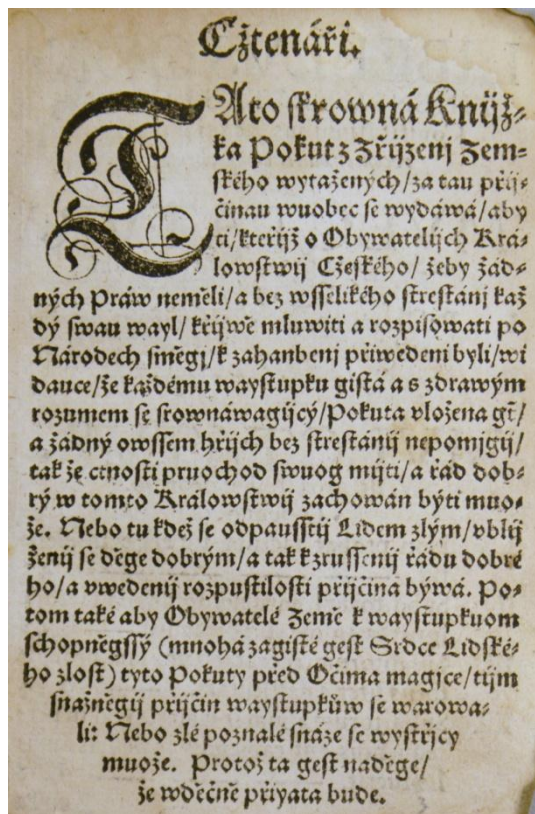 Cžtenáři.
TAto skrowná Knijž-
ka Pokut z Zřijzenj Zem-
ského wytažených/ za tau přij-
činau wuobec se wydáwá/ aby
ti/ kteřijž o Obywatelijch Krá-
lowstwij Cžeského/ žeby žád-
ných Práw neměli/ a bez wsselikého strestánj kaž
dý swau wayl/ křijwě mluwiti a rozpisowati po
Národech směgj/ k zahanbenj přiwedeni byli/ wi
dauce/ že každému waystupku gistá a s zdrawým
rozumem se srownáwagijcý/ Pokuta vložena gt̃/
a žádný owssem hřijch bez strestánij nepomjgij/
tak že ctnosti pruochod swuog mijti/ a řád dob-
rý w tomto Králowstwij zachowán býti muo-
že. Nebo tu kdež se odpausstij Lidem zlým/ vblij
ženij se děge dobrým/ a tak k zrussenij řádu dobré
ho/ a vwedenij rozpustilosti přijčina býwá. Po-
tom také aby Obywatelé Země k waystupkuom
schopněgssý (mnohá zagisté gest Srdce Lidské-
ho zlost) tyto Pokuty před Očima magice/ tijm
snažněgij přijčin waystupkůw se warowa-
li: Nebo zlé poznalé snáze se wystřijcy
muože. Protož ta gest naděge/
že wděčně přiyata bude.